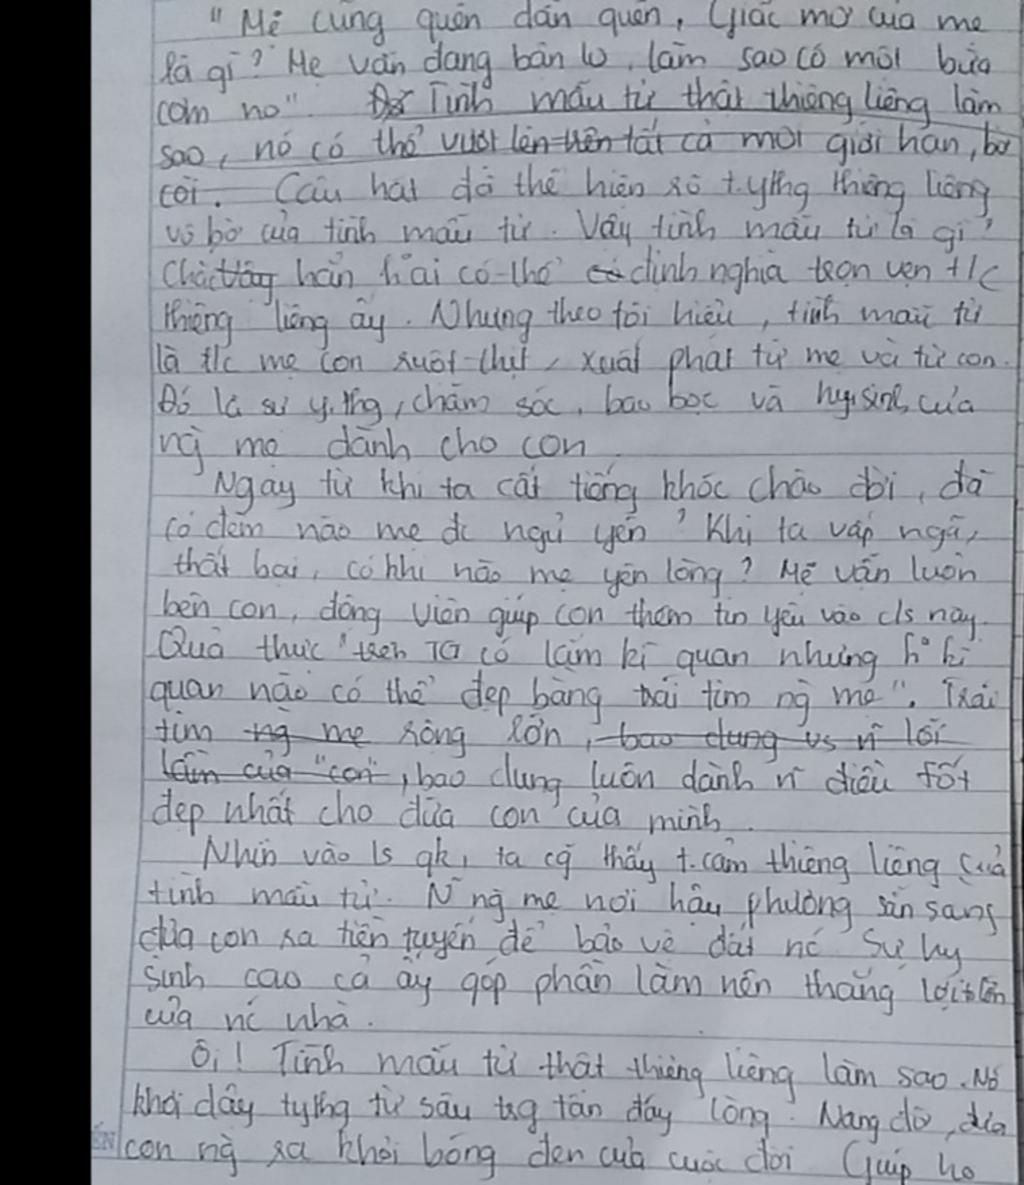 "Mẹ cũng quên dần quên, Giấc mơ của mẹ
là gì? Mẹ vẫn đang bận lo, làm sao có một bữa
cơm no". Tình mẫu tử thật thiêng liêng làm
sao, nó có thể vượt lên trên tất cả mọi giới hạn, bờ
cõi. Câu hát đã thể hiện rõ t.ythg thiêng liêng
vô bờ của tình mẫu tử. Vậy tình mẫu tử là gì?
Chắc hẳn k ai có thể định nghĩa trọn vẹn t/c
thiêng liêng ấy. Nhưng theo tôi hiểu, tình mẫu tử
là t/c mẹ con ruột thịt, xuất phát từ mẹ và từ con.
Đó là sự y.thg, chăm sóc, bao bọc và hy sinh của
ng mẹ dành cho con
Ngay từ khi ta cất tiếng khóc chào đời, đã
có đêm nào mẹ đc ngủ yên? Khi ta vấp ngã,
thất bại, có khi nào mẹ yên lòng? Mẹ vẫn luôn
bên con, động viên giúp con thêm tin yêu vào c/s này.
Quả thực "trên TG có lắm kì quan nhưng k kì
quan nào có thể đẹp bằng trái tim ng mẹ". Trái
tim ng mẹ rộng lớn, bao dung vs n~ lỗi
lầm của "con", bao dung luôn dành n~ điều tốt
đẹp nhất cho đứa con của mình.
Nhìn vào ls qk, ta cg thấy t.cảm thiêng liêng của
tình mẫu tử. N~ ng mẹ nơi hậu phương sẵn sàng
đưa con ra tiền tuyến để bảo vệ đất nc. Sự hy
sinh cao cả ấy góp phần làm nên thắng lợi lớn
của nc nhà.
Ôi! Tình mẫu tử thật thiêng liêng làm sao. Nó
khơi dậy tythg từ sâu trg tận đáy lòng. Nâng đỡ, đưa
con ng ra khỏi bóng đen của cuộc đời Giúp họ